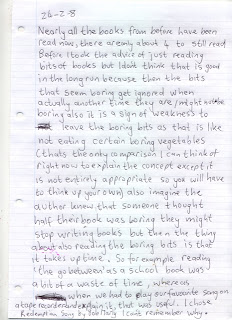 26-2-8
Nearly all the books from before have been
read now, there are only about 4 to still read
Before I took the advice of just reading
bits of books but I don't think that is good
in the long run because then the bits
that seem boring get ignored when
actually another time they are/might not be
boring also it is a sign of weakness to
leave the boring bits as that is like
not eating certain boring vegetables
(thats the only comparison I can think of
right now to explain the concept except it
is not entirely appropriate so you will have
to think up your own) also imagine the
author knew that someone thought
half their book was boring they might
stop writing books but then the thing
about also reading the boring bits is that
it takes up time, So for example reading
'the go between' as a school book was
a bit of a waste of time, whereas
when we had to play our favourite song on
a tape recorder and explain it, that was useful. I chose
Redemption Song by Bob Marly I cant remember why.